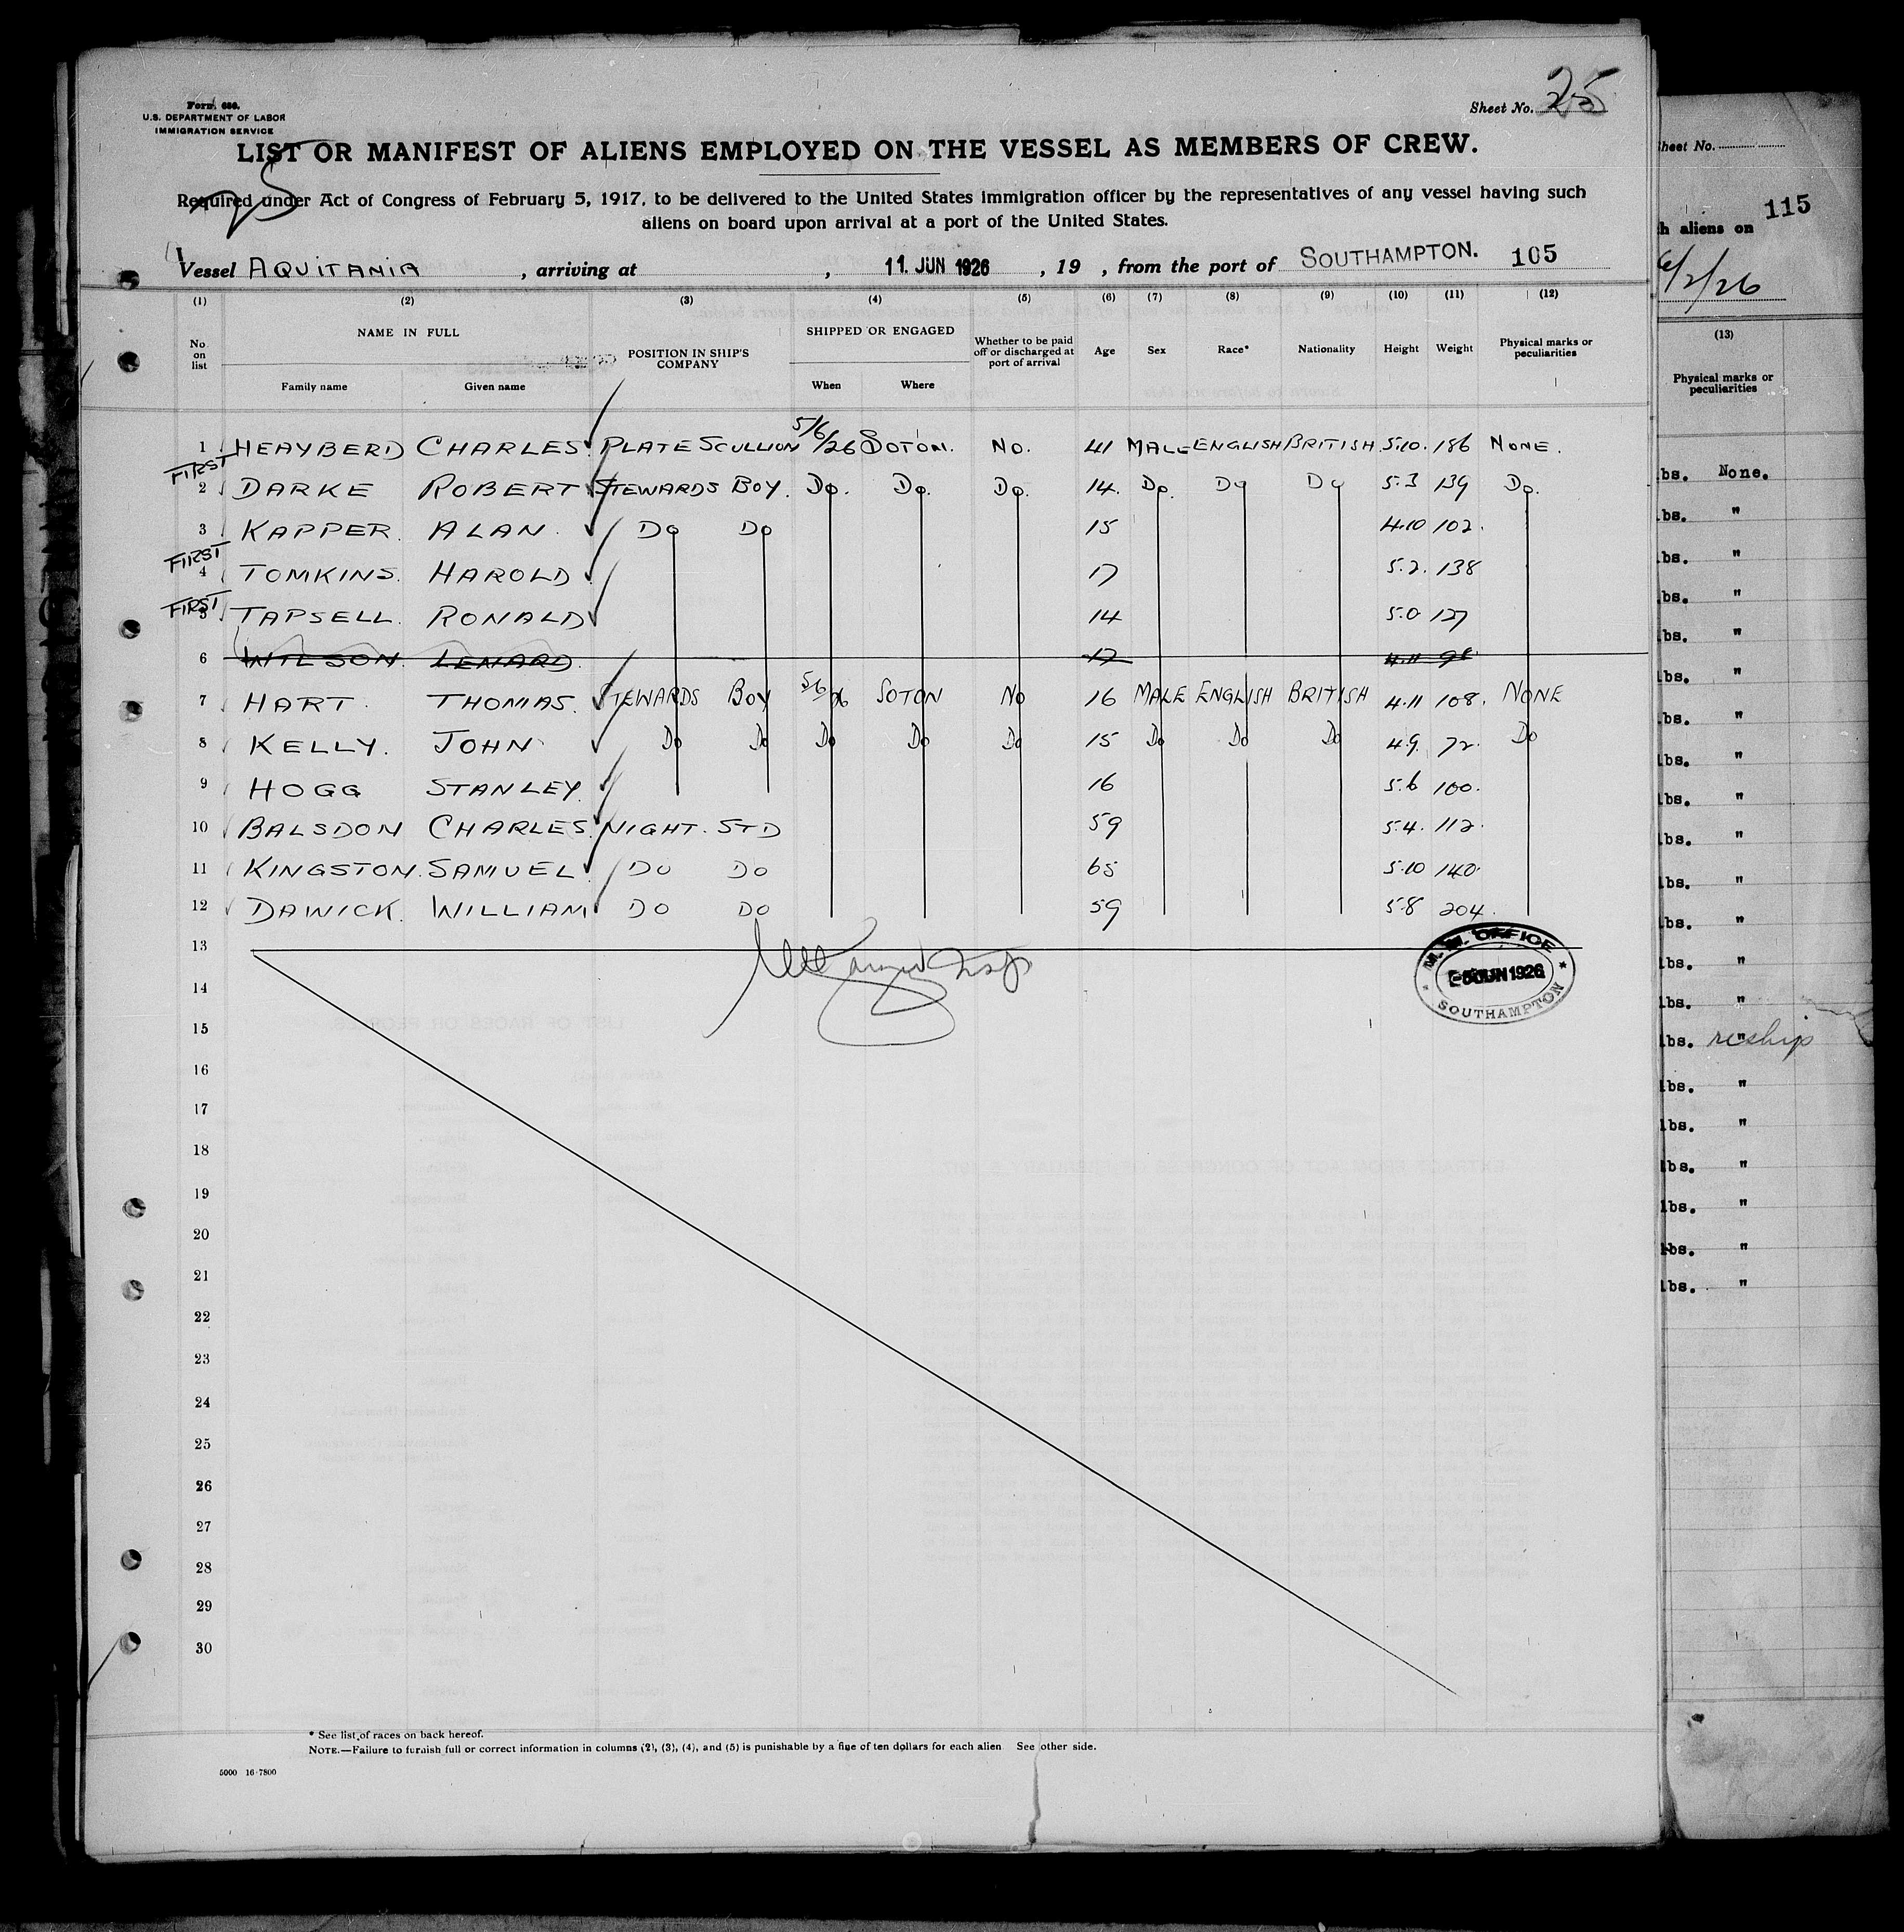 Form 686.
U.S. DEPARTMENT OF LABOR
IMMIGRATION SERVICE
Sheet No. 25
LIST OR MANIFEST OF ALIENS EMPLOYED ON THE VESSEL AS MEMBERS OF CREW.
25
Required under Act of Congress of February 5, 1917, to be delivered to the United States immigration officer by the representatives of any vessel having such
aliens on board upon arrival at a port of the United States.
Vessel AQUITANIA , arriving at , 11. JUN 1926 , 19 , from the port of SOUTHAMPTON. 105
(1) (2) (3) (4) (5) (6) (7) (8) (9) (10) (11) (12)
No. on list NAME IN FULL Family name Given name POSITION IN SHIP'S COMPANY SHIPPED OR ENGAGED When Where Whether to be paid off or discharged at port of arrival Age Sex Race* Nationality Height Weight Physical marks or peculiarities
1 HEAYBERD CHARLES. PLATE SCULLION 5/6/26 SOTON. NO. 41 MALE ENGLISH BRITISH 5.10. 186 NONE.
FIRST
2 DARKE ROBERT STEWARDS BOY. Do. Do. Do. 14. Do. Do Do 5.3 139 Do.
3 KAPPER. ALAN. Do Do 15 4.10 102.
FIRST
4 TOMKINS. HAROLD 17 5.2. 138
FIRST
5 TAPSELL. RONALD 14 5.0 127
6 WILSON. LENARD. 17 4.11 98
7 HART. THOMAS. STEWARDS BOY 5/6/26 SOTON NO 16 MALE ENGLISH BRITISH 4.11 108. NONE
8 KELLY. JOHN Do Do Do Do Do 15 Do Do Do 4.9. 72. Do
9 HOGG STANLEY. 16 5.6 100.
10 BALSDON CHARLES. NIGHT. STD 59 5.4. 112.
11 KINGSTON. SAMUEL Do Do 65 5.10 140.
12 DAWICK. WILLIAM Do Do 59 5.8 204.
13
M.M. OFFICE
JUN 1926
SOUTHAMPTON
14
15
16
17
18
19
20
21
22
23
24
25
26
27
28
29
30
* See list of races on back hereof.
NOTE.—Failure to furnish full or correct information in columns (2), (3), (4), and (5) is punishable by a fine of ten dollars for each alien. See other side.
5000 16-7800
heet No.
115
h aliens on
6/2/26
(13)
Physical marks or
peculiarities
lbs. None.
lbs. "
lbs. "
lbs. "
lbs. "
lbs. "
lbs. "
lbs. "
lbs. "
lbs. "
lbs. "
lbs. "
lbs. "
lbs. "
lbs. " reship
lbs. "
lbs. "
lbs. "
lbs. "
lbs. "
lbs. "